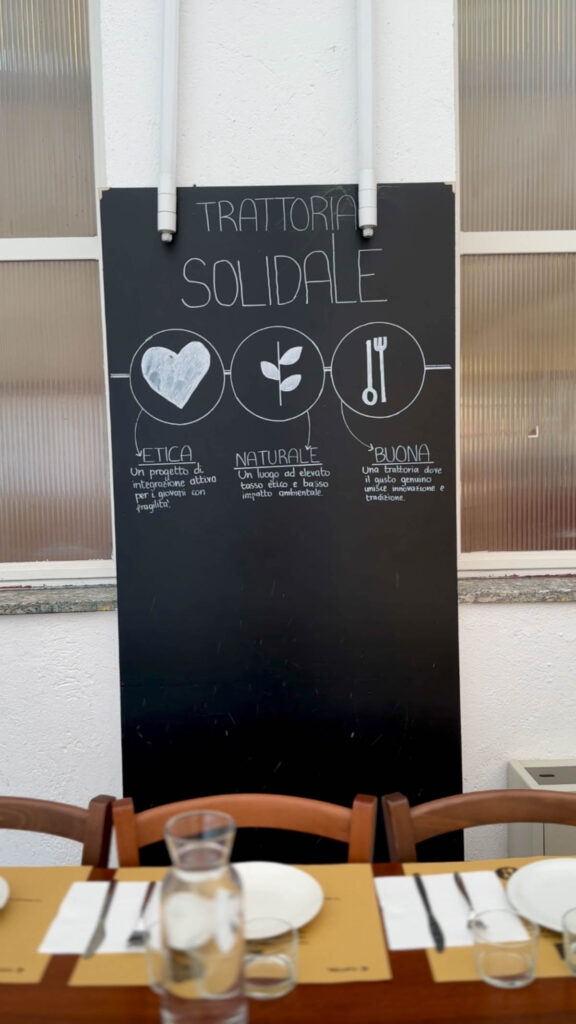 TRATTORIA
SOLIDALE
ETICA
Un progetto di
integrazione attiva
per i giovani con
fragilità.
NATURALE
Un luogo ad elevato
tasso etico e basso
impatto ambientale.
BUONA
Una trattoria dove
il gusto genuino
unisce innovazione e
tradizione.